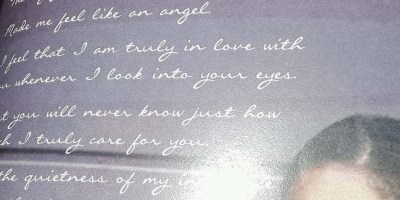 Made me feel like an angel
I feel that I am truly in love with
whenever I look into your eyes.
you will never know just how
I truly care for you.
the quietness of my